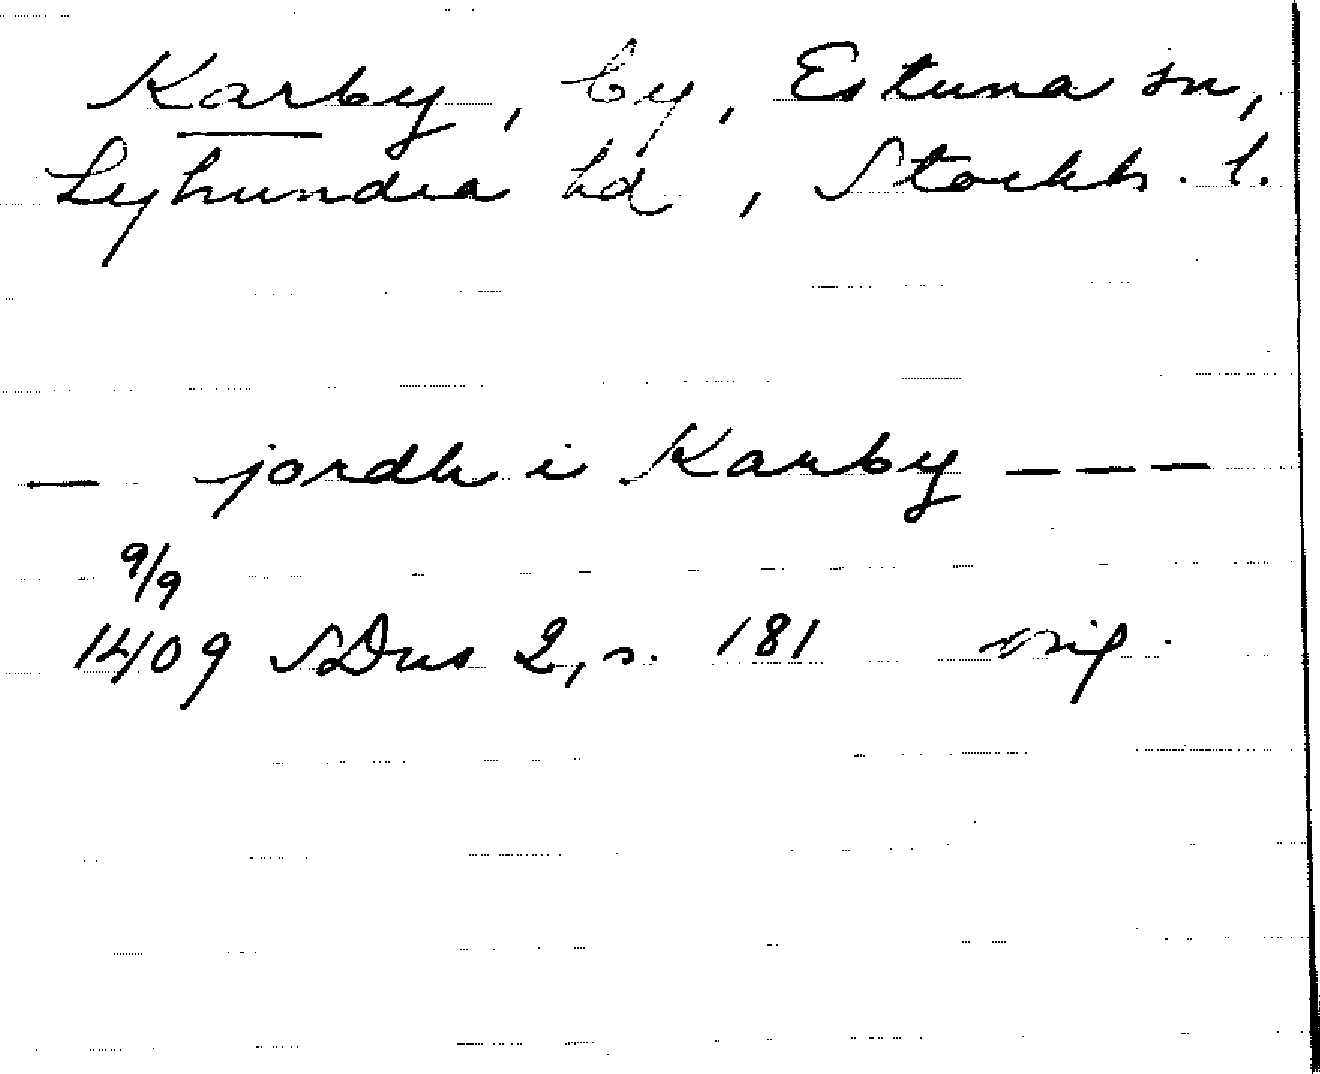 Karby, by, Estuna sn,
Lyhundra hd, Stockh. l.
— jordh i Karby — — —
9/9
1409 SDns 2, s. 181 orig.